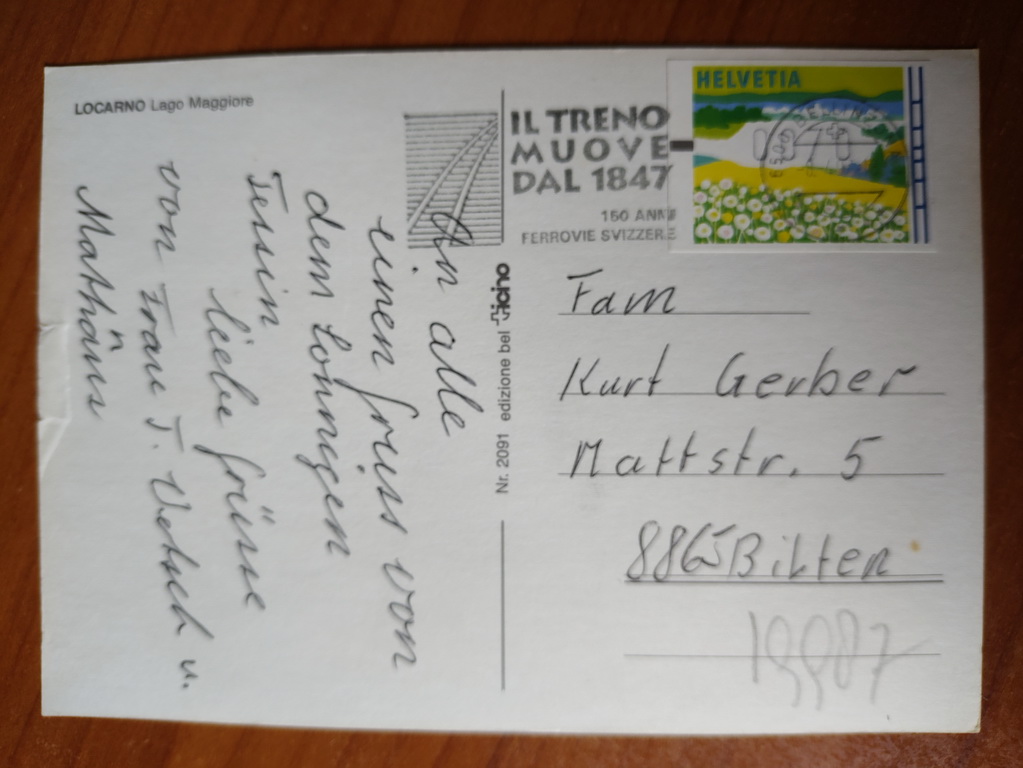 LOCARNO Lago Maggiore
An alle
einen gruss von
dem sonnigen
Tessin
liebe grüsse
von Frau T. Vetsch u.
Mathäus
n
Nr. 2091 edizione bel ticino
IL TRENO
MUOVE
DAL 1847
150 ANNI
FERROVIE SVIZZERE
HELVETIA
Fam
Kurt Gerber
Mattstr. 5
8865 Bilten